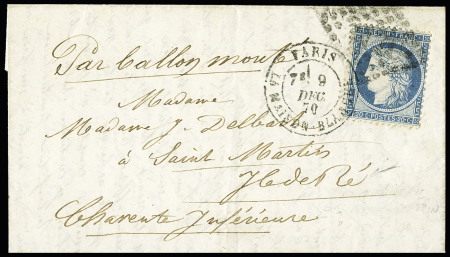 Par ballon monté
PARIS
LA MAISON-BLANCHE
7E 9
DEC.
70
REPUB. FRANC.
20 C. POSTES 20 C.
Madame
Madame J. Delbat
à Saint Martin
Ile de Ré
Charente Inférieure